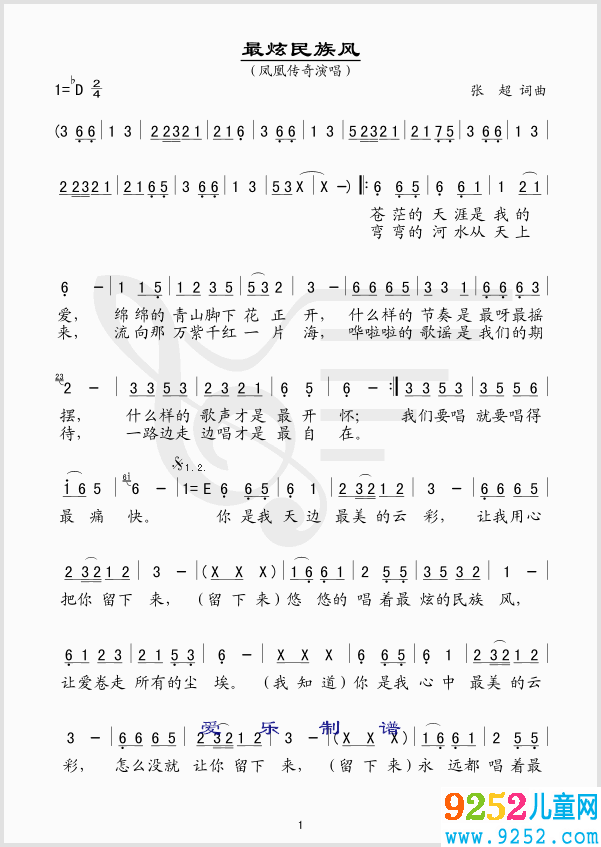 最炫民族风
(凤凰传奇演唱)
1=♭D 2/4 张 超 词曲
(3 6 6 | 1 3 | 2 2 3 2 1 | 2 1 6 | 3 6 6 | 1 3 | 5 2 3 2 1 | 2 1 7 5 | 3 6 6 | 1 3 |
2 2 3 2 1 | 2 1 6 5 | 3 6 6 | 1 3 | 5 3 X | X –) ‖: 6 6 5 | 6 6 1 | 1 2 1 |
苍 茫的 天 涯是 我 的
弯 弯的 河 水从 天 上
6 – | 1 1 5 | 1 2 3 5 | 5 3 2 | 3 – | 3 3 5 3 | 2 2 3 5 | 6 6 6 3 |
爱, 绵绵的 青山脚下 花 正 开, 什么样的 节奏是 最呀最摇
来, 流向那 万紫千红 一 片 海, 哗啦啦的 歌谣是 我们的期
23 2 – | 3 3 5 3 | 2 2 3 2 | 6 5 | 6 – :‖ 3 3 5 3 | 3 5 5 6 |
摆, 什么样的 歌声才是 最 开 怀; 我们要唱 就要唱得
待, 一路边走 边唱才是 最 自 在。
𝄋1.2.
1 6 5 | 6 – | 1=E 6 6 5 | 6 1 | 2 3 2 1 2 | 3 – | 6 6 6 5 |
最 痛 快。 你 是我 天 边 最美的云 彩, 让我用心
2 3 2 1 2 | 3 – | (X X X) | 1 6 6 1 | 2 2 3 | 5 3 5 3 | 1 – |
把你 留下 来, (留 下 来) 悠 悠的 唱 着最 炫的民族 风,
6 1 2 3 | 2 1 5 3 | 6 – | (X X X) | 6 6 5 | 6 1 | 2 3 2 1 2 |
让爱卷走 所有的尘 埃。 (我 知 道) 你 是我 心 中 最美的云
3 – | 6 6 6 5 | 2 3 2 1 2 | 3 – | (X X X) | 1 6 6 1 | 2 2 3 |
彩, 怎么没就 让你 留下 来, (留 下 来) 永 远都 唱 着最
爱 乐 制 谱
1
9252儿童网
www.9252.com